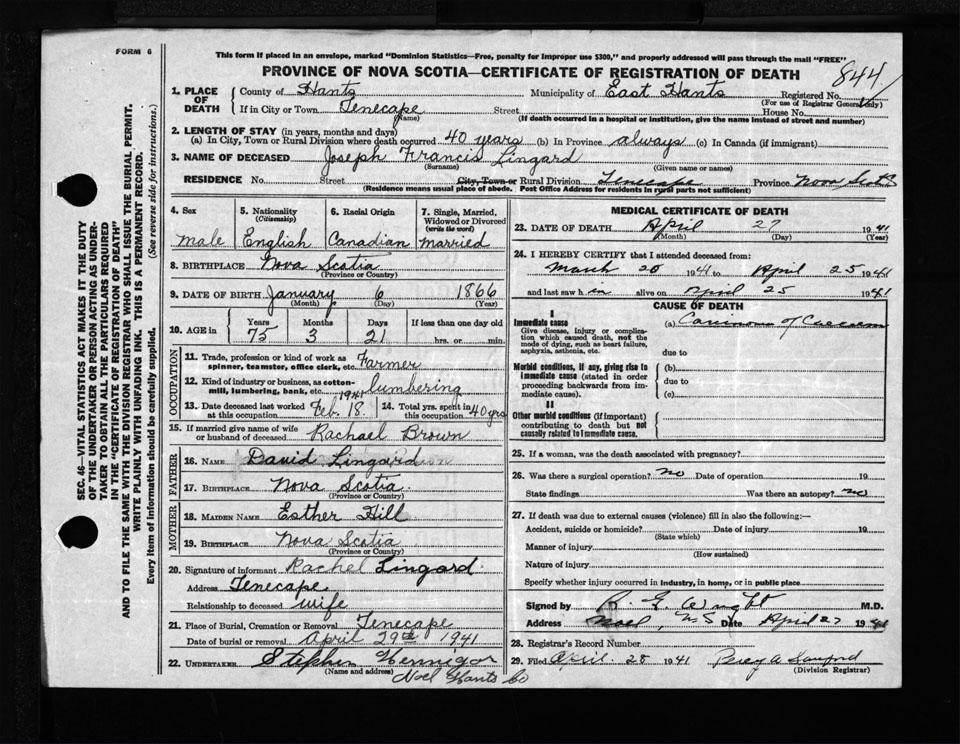 FORM 6
This form if placed in an envelope, marked "Dominion Statistics—Free, penalty for improper use $300," and properly addressed will pass through the mail "FREE"
PROVINCE OF NOVA SCOTIA—CERTIFICATE OF REGISTRATION OF DEATH
844
1. PLACE OF DEATH
County of Hants Municipality of East Hants Registered No.
(For use of Registrar General only)
If in City or Town Tenecape Street House No.
(Name) (If death occurred in a hospital or institution, give the name instead of street and number)
2. LENGTH OF STAY (in years, months and days)
(a) In City, Town or Rural Division where death occurred 40 years (b) In Province always (c) In Canada (if immigrant)
3. NAME OF DECEASED Joseph Francis Lingard
(Surname) (Given name or names)
RESIDENCE No. Street City, Town or Rural Division Tenecape Province Nova Scotia
(Residence means usual place of abode. Post Office Address for residents in rural parts not sufficient)
SEC. 46—VITAL STATISTICS ACT MAKES IT THE DUTY
OF THE UNDERTAKER OR PERSON ACTING AS UNDER-
TAKER TO OBTAIN ALL THE PARTICULARS REQUIRED
IN THE "CERTIFICATE OF REGISTRATION OF DEATH"
AND TO FILE THE SAME WITH THE DIVISION REGISTRAR WHO SHALL ISSUE THE BURIAL PERMIT.
WRITE PLAINLY WITH UNFADING INK. THIS IS A PERMANENT RECORD.
Every item of Information should be carefully supplied. (See reverse side for instructions.)
4. Sex
male
5. Nationality
(Citizenship)
English
6. Racial Origin
Canadian
7. Single, Married,
Widowed or Divorced
(write the word)
married
8. BIRTHPLACE Nova Scotia
(Province or Country)
9. DATE OF BIRTH January 6 1866
(Month) (Day) (Year)
10. AGE in
Years Months Days If less than one day old
75 3 21 hrs. or min.
OCCUPATION
11. Trade, profession or kind of work as
spinner, teamster, office clerk, etc. Farmer
12. Kind of industry or business, as cotton-
mill, lumbering, bank, etc. lumbering
13. Date deceased last worked
at this occupation Feb. 18. 1941
14. Total yrs. spent in
this occupation 40 yrs
15. If married give name of wife
or husband of deceased Rachael Brown
FATHER
16. NAME David Lingard
17. BIRTHPLACE Nova Scotia
(Province or Country)
MOTHER
18. MAIDEN NAME Esther Hill
19. BIRTHPLACE Nova Scotia
(Province or Country)
20. Signature of informant Rachel Lingard
Address Tenecape
Relationship to deceased wife
21. Place of Burial, Cremation or Removal Tenecape
Date of burial or removal April 29th 1941
22. UNDERTAKER Stephen Hennigar
(Name and address)
Noel Hants Co
MEDICAL CERTIFICATE OF DEATH
23. DATE OF DEATH April 27 1941
(Month) (Day) (Year)
24. I HEREBY CERTIFY that I attended deceased from:
March 20 1941 to April 25 1941
and last saw him alive on April 25 1941
CAUSE OF DEATH
I
Immediate cause
Give disease, injury or complica-
tion which caused death, not the
mode of dying, such as heart failure,
asphyxia, asthenia, etc.
(a) Carcinoma of Caecum
due to
Morbid conditions, if any, giving rise to
immediate cause (stated in order
proceeding backwards from im-
mediate cause).
(b)
due to
(c)
II
Other morbid conditions (if important)
contributing to death but not
causally related to immediate cause.
25. If a woman, was the death associated with pregnancy?
26. Was there a surgical operation? no Date of operation 19
State findings Was there an autopsy? no
27. If death was due to external causes (violence) fill in also the following:—
Accident, suicide or homicide? Date of injury 19
(State which)
Manner of injury
(How sustained)
Nature of injury
Specify whether injury occurred in industry, in home, or in public place
Signed by R. E. Wright M.D.
Address Noel, NS Date April 27 1941
28. Registrar's Record Number
29. Filed April. 28 1941 Percy A Sanford
(Division Registrar)